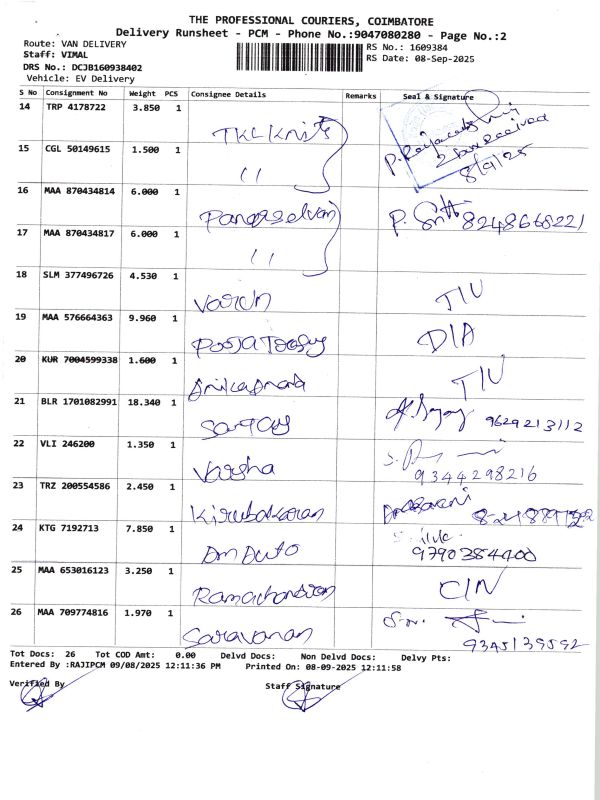 THE PROFESSIONAL COURIERS, COIMBATORE
Delivery Runsheet - PCM - Phone No.:9047080280 - Page No.:2
Route: VAN DELIVERY
Staff: VIMAL
DRS No.: DCJB160938402
Vehicle: EV Delivery
RS No.: 1609384
RS Date: 08-Sep-2025
S No Consignment No Weight PCS Consignee Details Remarks Seal & Signature
14 TRP 4178722 3.850 1 TKL Knits
2 box received
8/9/25
15 CGL 50149615 1.500 1 "
16 MAA 870434814 6.000 1 8248668221
17 MAA 870434817 6.000 1 "
18 SLM 377496726 4.530 1 Varun TIU
19 MAA 576664363 9.960 1 DIA
20 KUR 7004599338 1.600 1 TIU
21 BLR 1701082991 18.340 1 Sanjay 9629213112
22 VLI 246200 1.350 1 Varsha 9344298216
23 TRZ 200554586 2.450 1 Kirubakaran
24 KTG 7192713 7.850 1 Dm Auto 9790384400
25 MAA 653016123 3.250 1 Ramachandran CIN
26 MAA 709774816 1.970 1 Saravanan 9345139592
Tot Docs: 26 Tot COD Amt: 0.00 Delvd Docs: Non Delvd Docs: Delvy Pts:
Entered By :RAJIPCM 09/08/2025 12:11:36 PM Printed On: 08-09-2025 12:11:58
Verified By Staff Signature